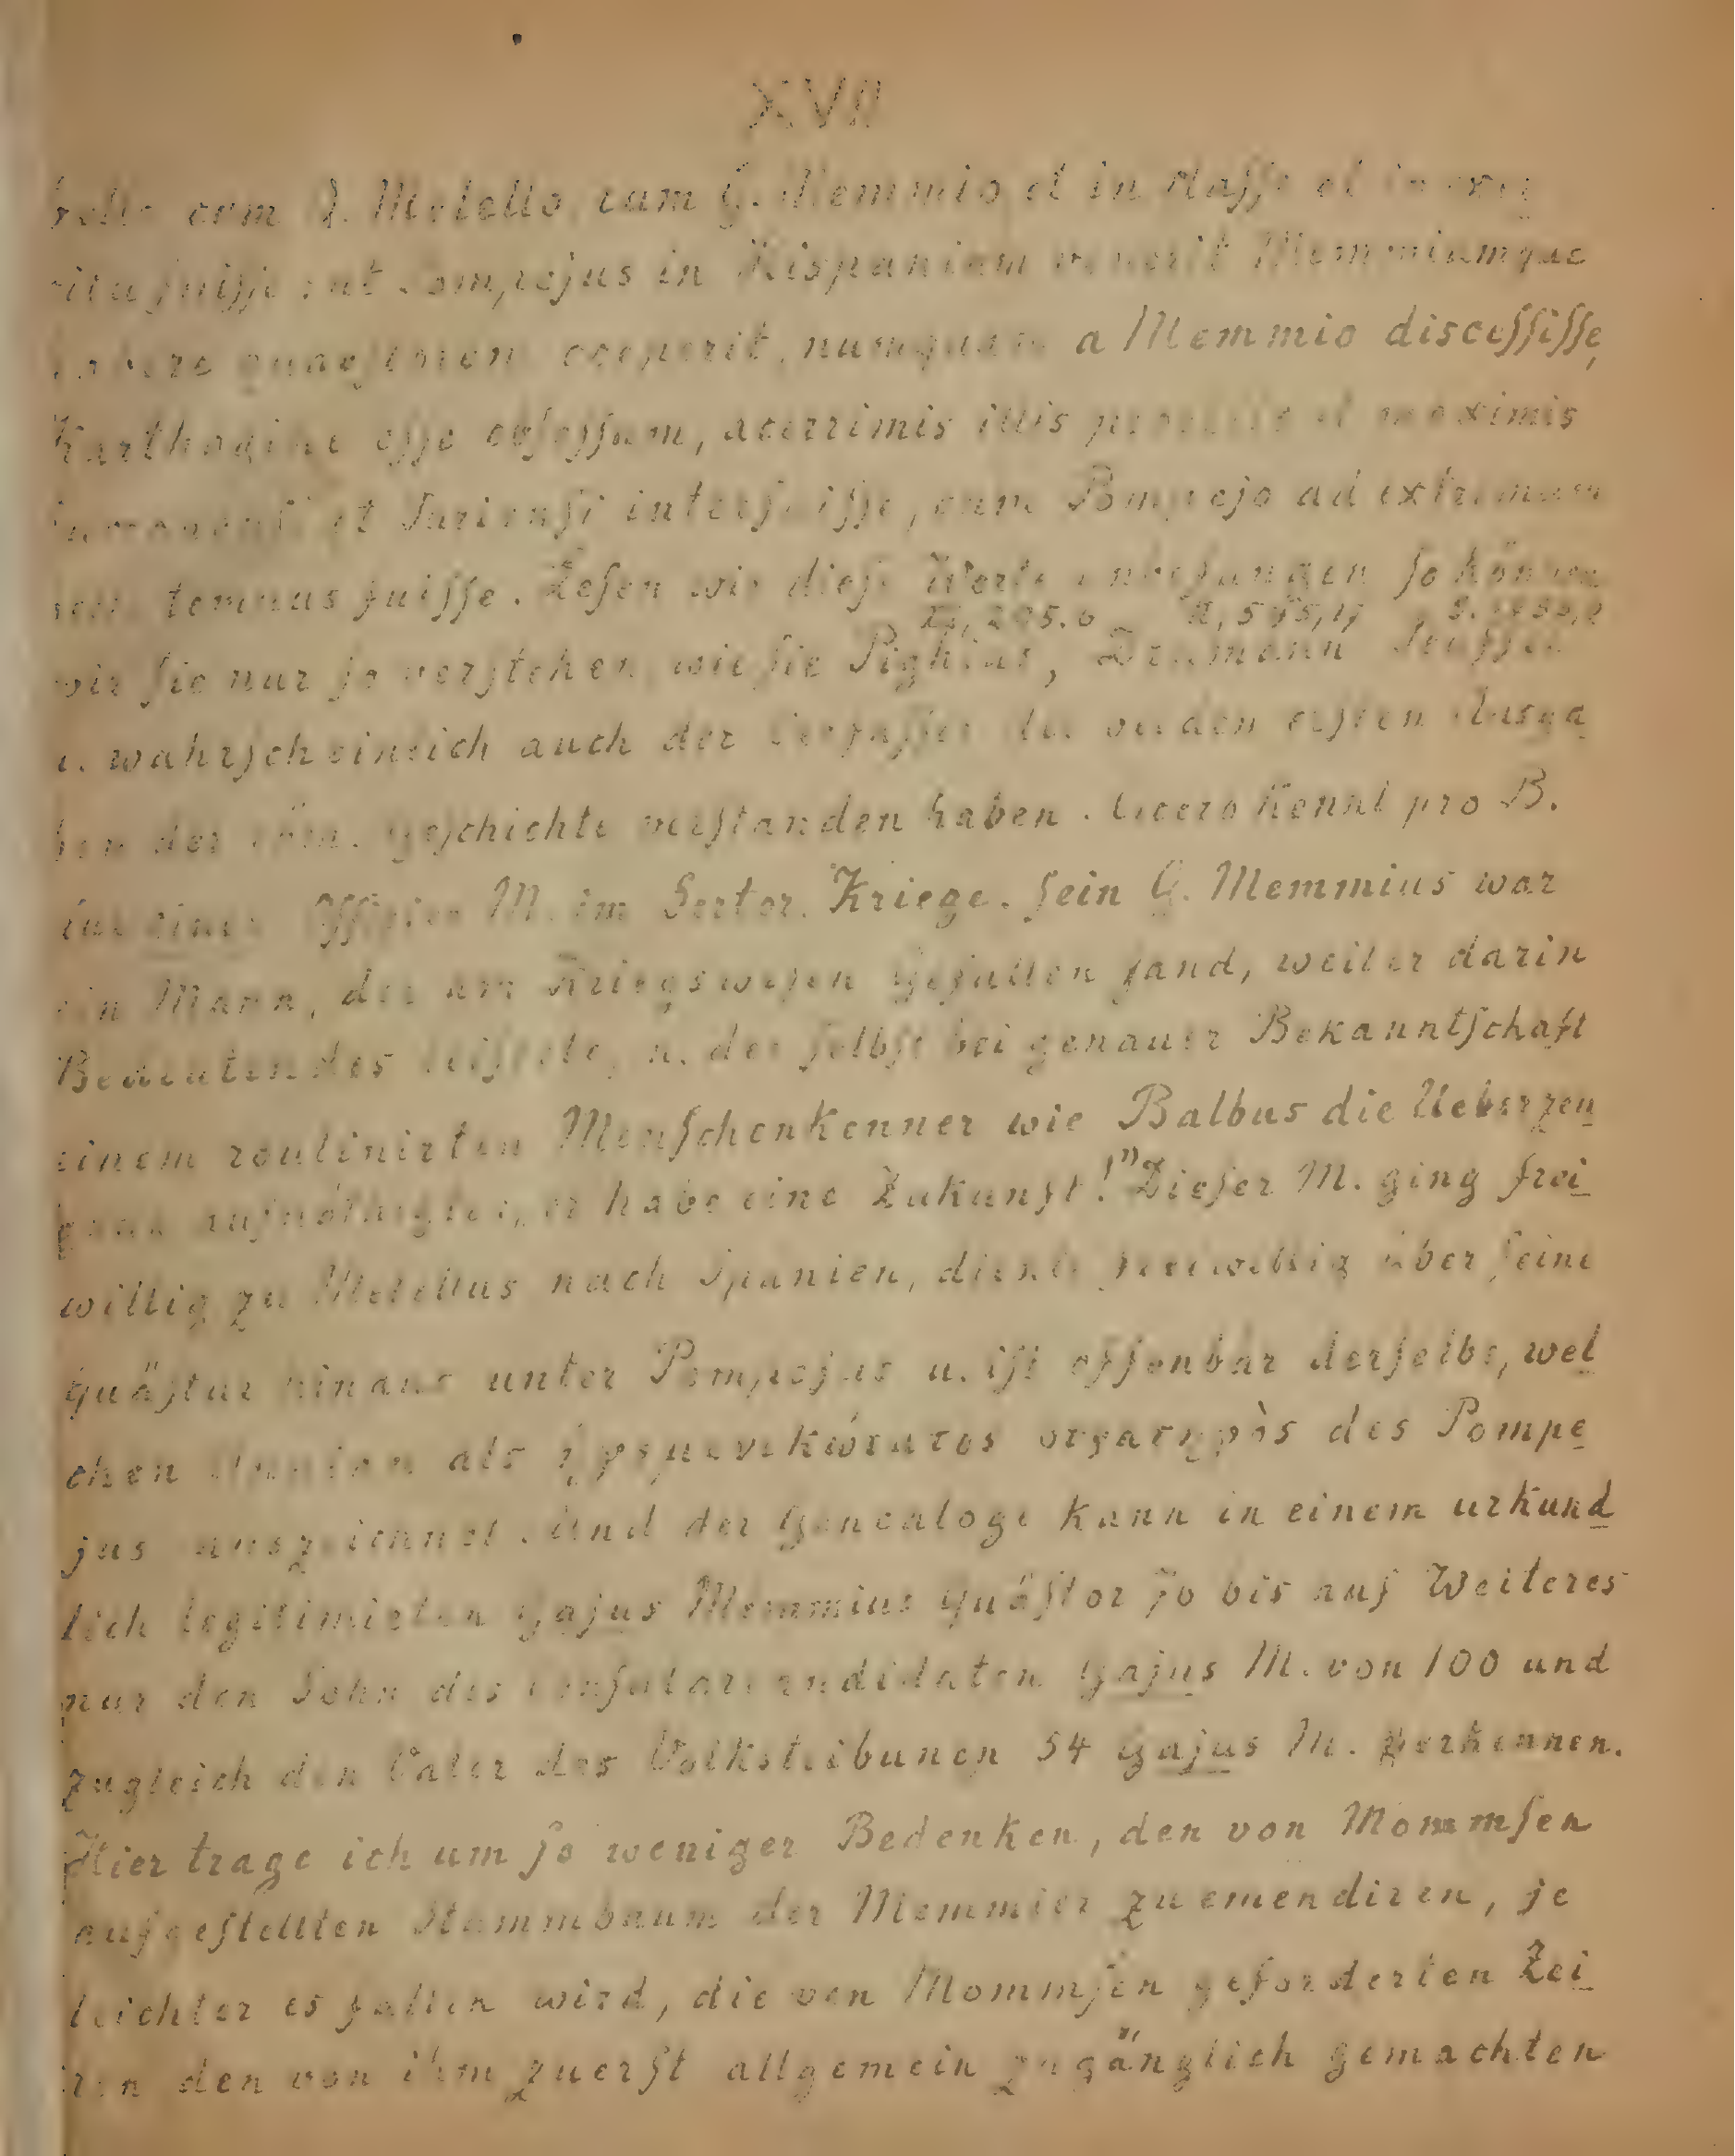 XVII
bello cum Q. Metello, cum G. Memmio et in claſſe et in exer
citu fuiſſe; ut Pompejus in Hispaniam venerit Memmiumque
habere quaeſtorem coeperit, numquam a Memmio discesſiſſe,
Karthagine eſſe obſeſſum, acerrimis illis proeliis et maximis
et Turienſi interfuiſſe, cum Pompejo ad extremum
belli tempus fuiſſe. Leſen wir dieſe Worte unbefangen ſo können
wir ſie nur ſo verſtehen, wie ſie Pighius, Drumann
u. wahrſcheinlich auch der Verfaſſer der beiden erſten Ausga
ben der röm. Geſchichte verſtanden haben. Cicero kennt pro B.
nur einen Offizier M. im Sertor. Kriege. Sein G. Memmius war
ein Mann, der am Kriegsweſen Gefallen fand, weil er darin
Bedeutendes leiſtete, u. der ſelbſt bei genauer Bekanntſchaft
einem routinirten Menſchenkenner wie Balbus die Ueberzeu
gung aufnöthigte: „er habe eine Zukunft!" Dieſer M. ging frei
willig zu Metellus nach Spanien, diente freiwillig über ſeine
Quäſtur hinaus unter Pompejus u. iſt offenbar derſelbe, wel
chen als des Pompe
jus auszeichnet. Und der Genealoge kann in einem urkund
lich legitimirten Gajus Memmius Quäſtor ſo bis auf Weiteres
nur den Sohn des Conſularcandidaten Gajus M. von 100 und
zugleich den Vater des Volkstribunen 54 Gajus M. erkennen.
Hier trage ich um ſo weniger Bedenken, den von Mommſen
aufgeſtellten Stammbaum der Memmier zu emendiren, je
leichter es fallen wird, die von Mommſen geforderten Zei
den von ihm zuerſt allgemein zugänglich gemachten